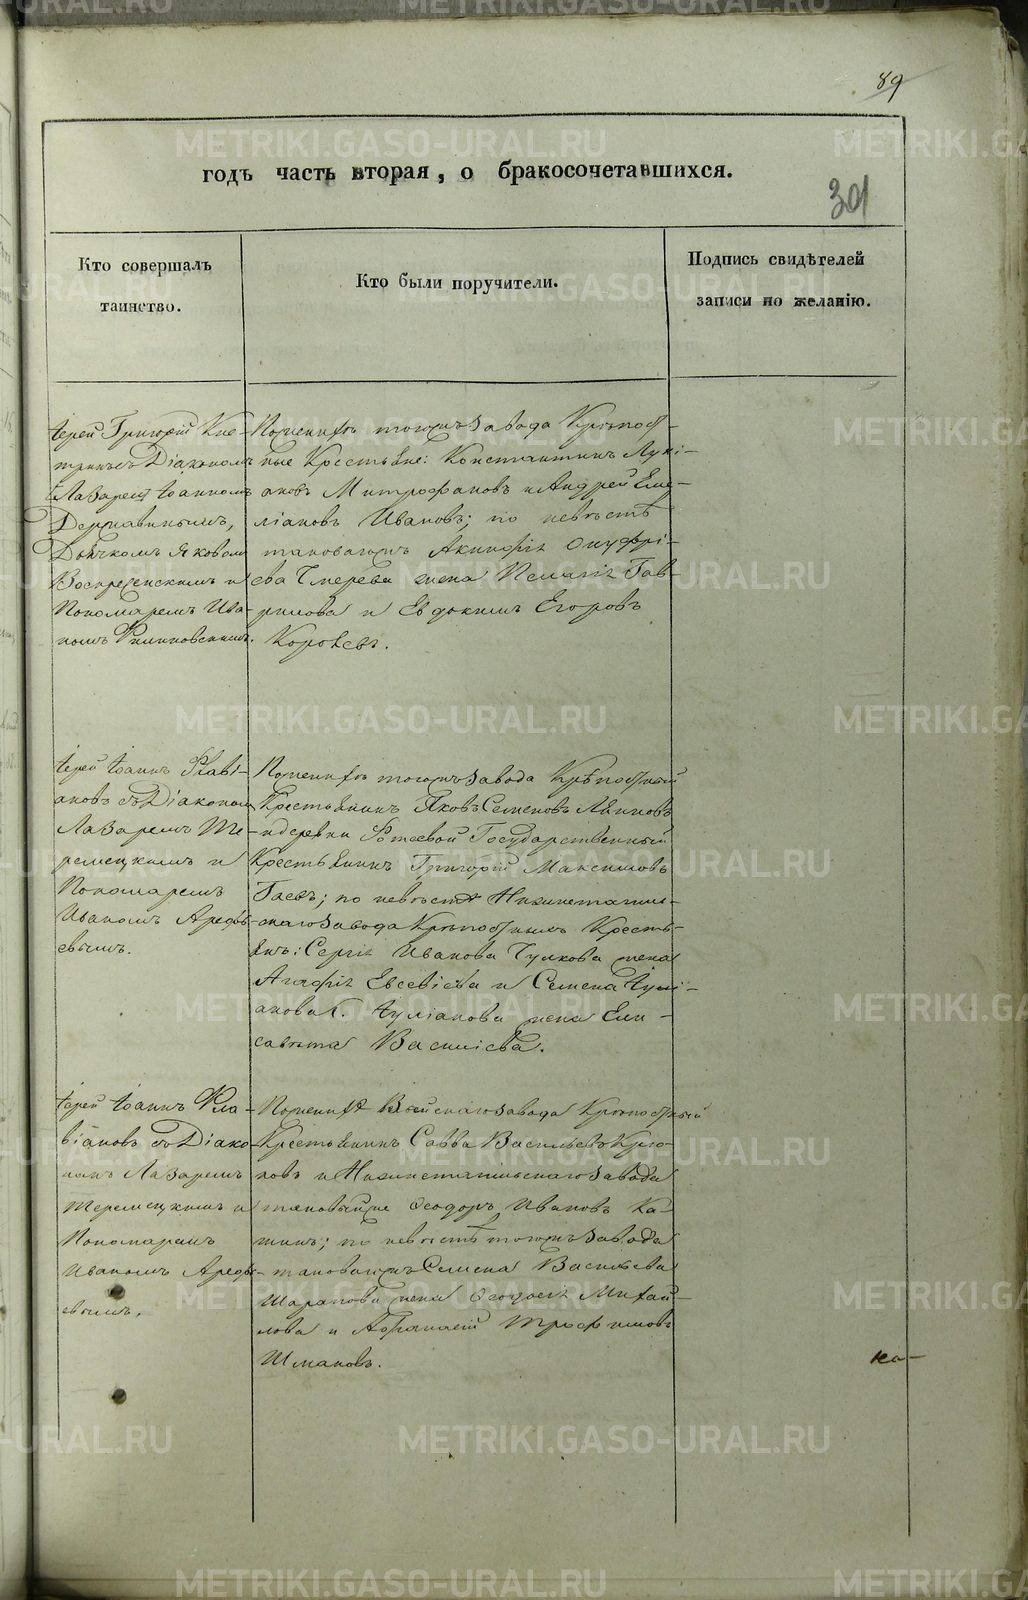 89
годъ часть вторая, о бракосочетавшихся.
301
Кто совершалъ
таинство.
Кто были поручители.
Подпись свидѣтелей
записи по желанію.
Іерей Григорій
Діакономъ
Лазаремъ Іоанномъ
Державинымъ,
Дьячкомъ Яковомъ
Воскресенскимъ и
Пономаремъ Ива-
номъ Филиповскимъ.
По женихѣ тогожъ завода Крѣпост-
ные Крестьяне: Константинъ Луки-
ановъ Митрофановъ и Андрей Еме-
ліановъ Ивановъ; по невѣстѣ
таковагожъ Акинфія Онуфрі-
ева жена Пелагія Гав-
рилова и Евдокимъ Егоровъ
Королевъ.
Іерей Іоаннъ Флаві-
ановъ съ Діакономъ
Лазаремъ Те-
ремецкимъ и
Пономаремъ
Иваномъ Арефь-
евымъ.
По женихѣ тогожъ завода Крѣпостный
Крестьянинъ Яковъ Семеновъ
и деревни Государственный
Крестьянинъ Григорій Максимовъ
Гаевъ; по невѣстѣ Нижнетагиль-
скаго завода Крѣпостныхъ Кресть-
янъ: Сергія Иванова Чулкова жена
Агафія Евсевіева и Семена Іулі-
анова Іуліанова жена Ели-
савета Василіева.
Іерей Іоаннъ Фла-
віановъ съ Діако-
номъ Лазаремъ
Теремецкимъ и
Пономаремъ
Иваномъ Арефь-
евымъ.
По женихѣ Выйскаго завода Крѣпостный
Крестьянинъ Савва Васильевъ Крю-
ковъ и Нижнетагильскаго завода
таковыйже Ѳеодоръ Ивановъ Ка-
шинъ; по невѣстѣ тогожъ завода
таковагожъ Семена Васильева
Шарапова жена Ѳеодосія Михай-
лова и Афанасій Трофимовъ
Шмаковъ.
ка-
METRIKI.GASO-URAL.RU